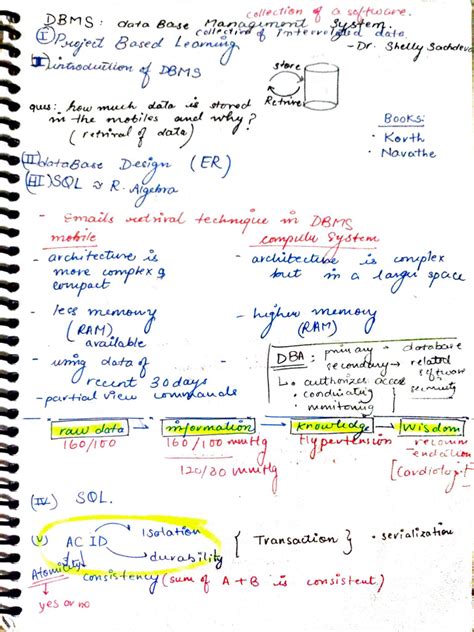 collection of a software.
DBMS: data Base Management System.
collection of interrelated data.
(I) Project Based Learning
- Dr. Shelly Sachdeva
(II) introduction of DBMS
store
Retrive
ques: how much data is stored
in the mobiles and why?
(retrival of data)
Books:
• Korth
• Navathe
(II) dataBase Design (ER)
(III) SQL ≈ R. Algebra
- Emails retrival technique in DBMS
mobile
computer System
- architecture is
more complex &
compact
- architecture is complex
but in a larger space
- less memory
(RAM)
available
- higher memory
(RAM)
- using data of
recent 30 days
- partial view commands
DBA: primary - database
secondary → related
software
security
↳ • authorizes access
• cordinating
• monitoring
raw data → information → Knowledge → Wisdom
160/100
160/100 mmHg
Hypertension
recomm
endation
[Cardiologist]
120/80 mmHg
(IV) SQL.
(V) ACID
Isolation
durability
{ Transaction }
• serialization
Atomicity
consistency (sum of A + B is consistent)
yes or no